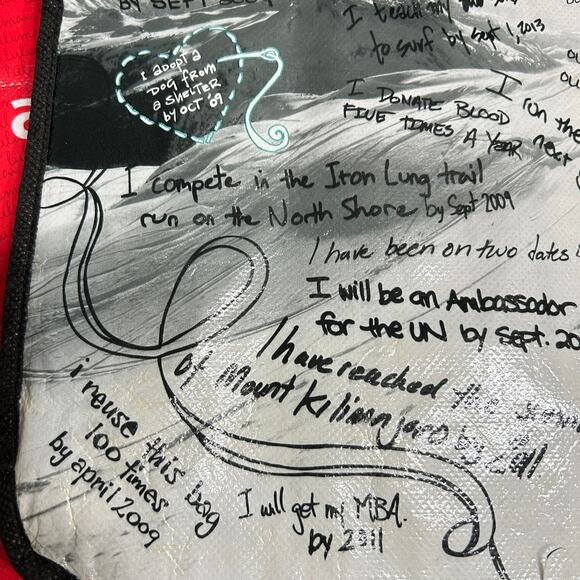 BY SEPT
I teach my
to surf by sept 1, 2013
i adopt a
DOG from
a SHELTER
by OCT '09
I DONATE BLOOD
FIVE TIMES A YEAR
I run the
next
I compete in the Iron Lung trail
run on the North Shore by Sept 2009
I have been on two dates
I will be an Ambassador
for the UN by Sept. 20
I have reached the
of Mount Kilimanjaro by 2011
i reuse this bag
100 times
by april 2009
I will get my MBA.
by 2011